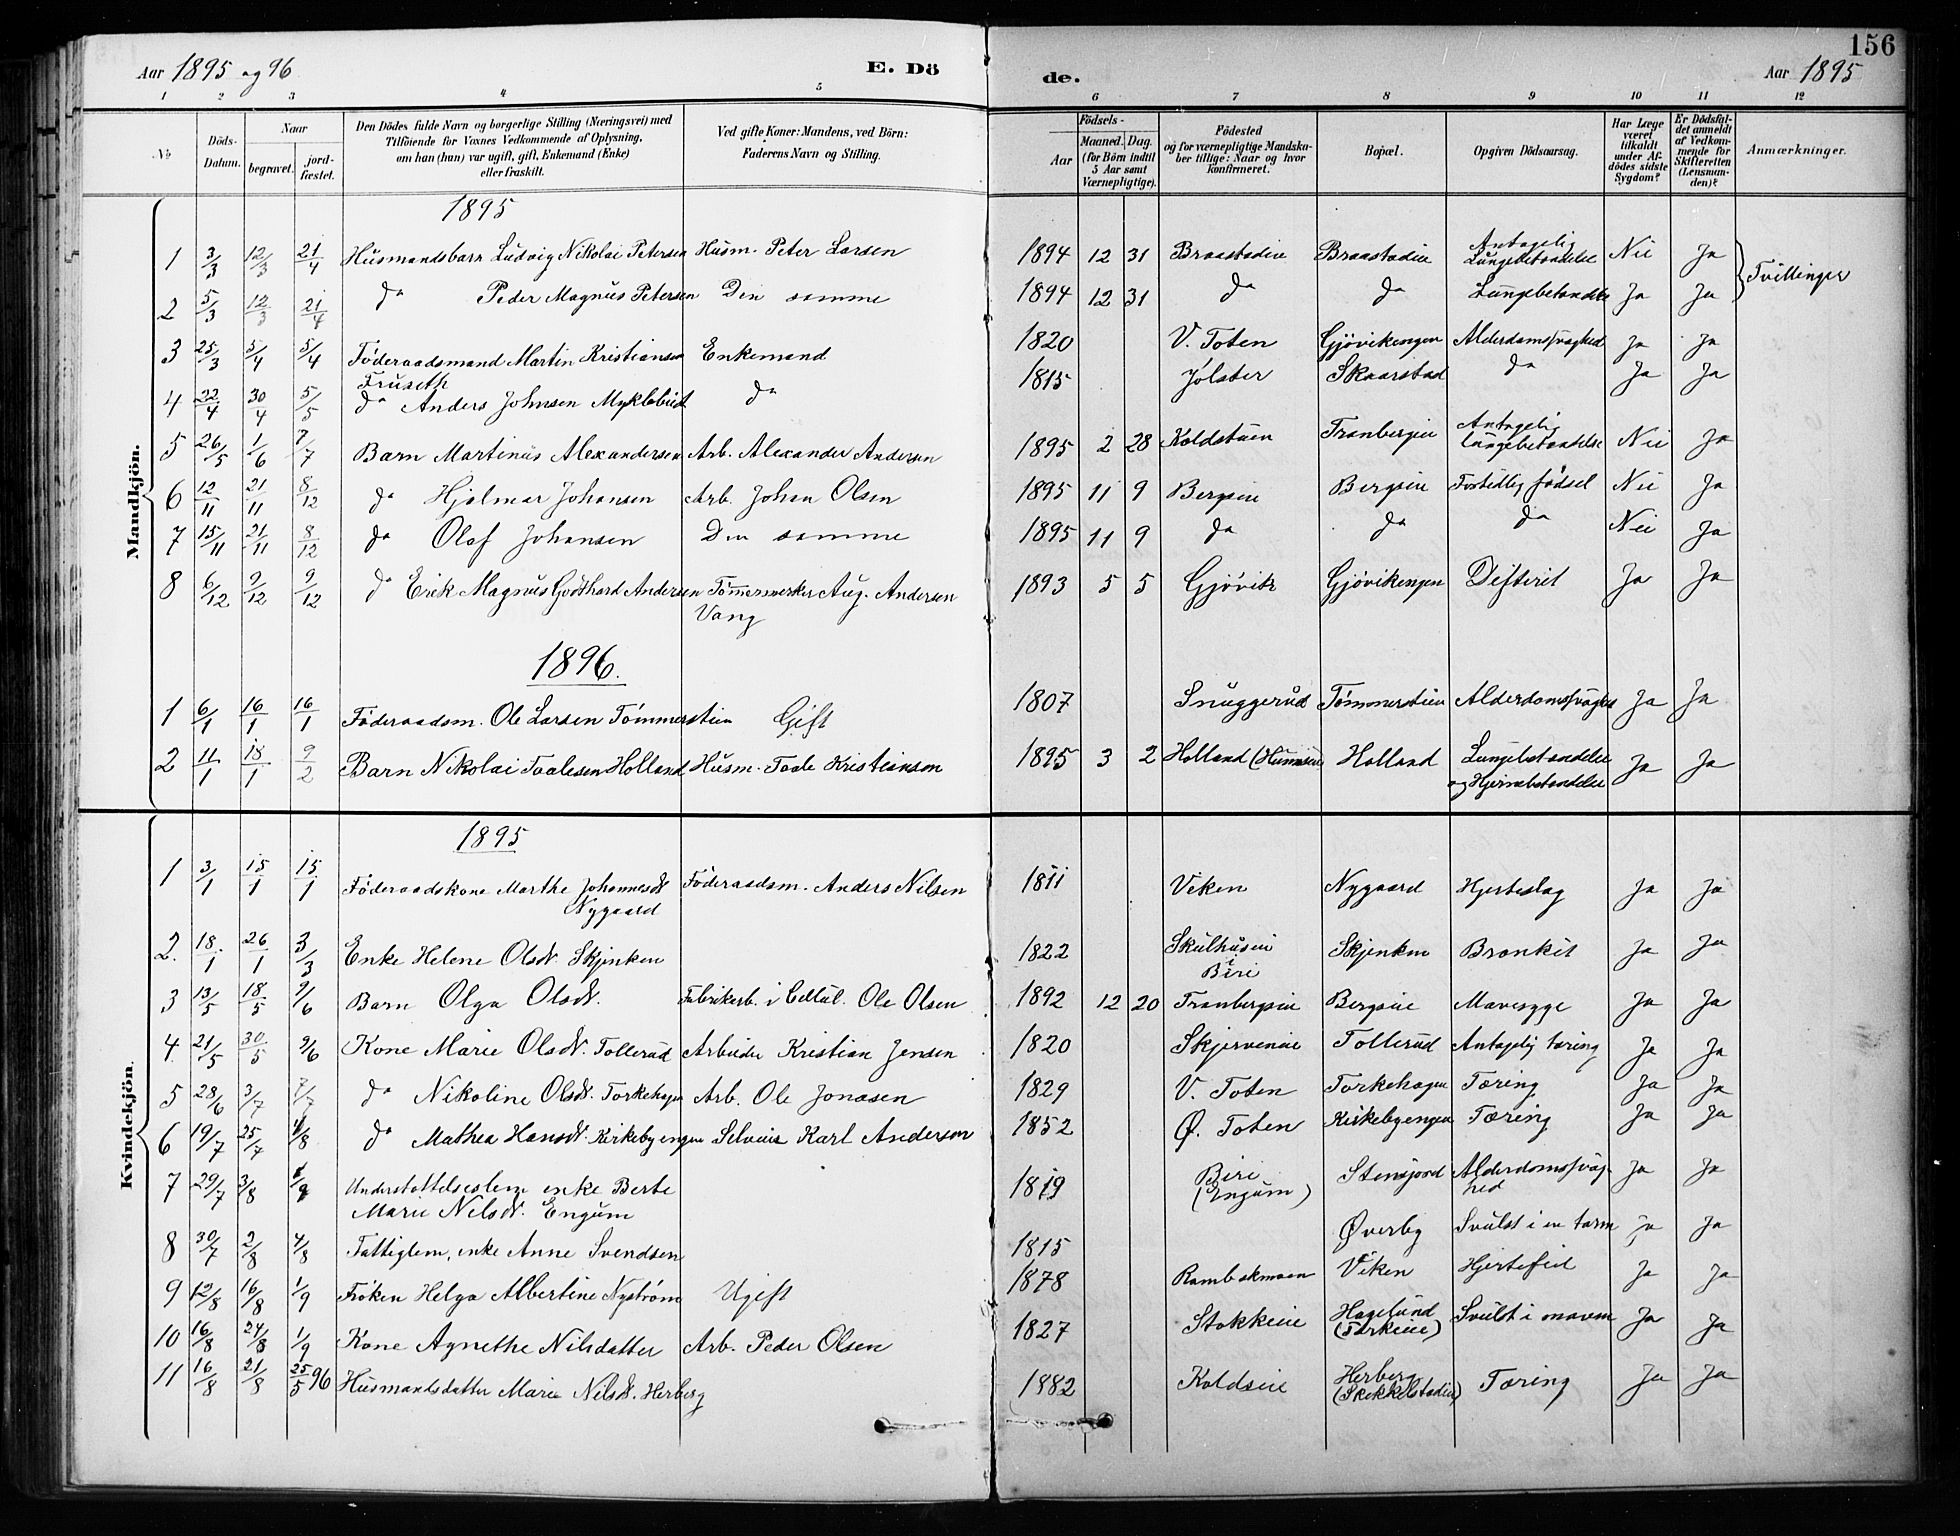 156
Aar 1895 og 96
E. Dö
de.
Aar 1895
1 2 3 4 5 6 7 8 9 10 11 12
№
Döds-Datum.
Naar
begravet.
jord-fæstet.
Den Dödes fulde Navn og borgerlige Stilling (Næringsvei) med
Tilföiende for Voxnes Vedkommende af Oplysning,
om han (hun) var ugift, gift, Enkemand (Enke)
eller fraskilt.
Ved gifte Koner: Mandens, ved Börn:
Faderens Navn og Stilling.
Födsels-
Aar
Maaned.
Dag.
(for Börn indtil
5 Aar samt
Værnepligtige).
Födested
og for værnepligtige Mandska-
ber tillige: Naar og hvor
konfirmeret.
Bopæl.
Opgiven Dödsaarsag.
Har Læge
været
tilkaldt
under Af-
dödes sidste
Sygdom?
Er Dödsfal-
det anmeldt
af Vedkom-
mende for
Skifteretten
(Lensman-
den)?
Anmærkninger.
Mandkjön.
1895
1 3/3 12/3 21/4 Husmandsbarn Ludvig Nikolai Petersen Husm. Peter Larsen 1894 12 31 Braastadeie Braastadeie Antagelig Lungebetændelse Nei Ja
Tvillinger
2 5/3 12/3 21/4 do Peder Magnus Petersen Den samme 1894 12 31 do do Lungebetændelse Ja Ja
3 25/3 5/4 5/4 Föderaadsmand Martin Kristiansen Fruseth Enkemand 1820 V. Toten Gjövikengen Alderdomssvaghed Ja Ja
4 22/4 30/4 5/5 do Anders Johnsen Myklebust do 1815 Jölster Skaarstad do Ja Ja
5 26/5 1/6 7/7 Barn Martinus Alexandersen Arb. Alexander Andersen 1895 2 28 Koldstuen Tranbergeie Antagelig Lungebetændelse Nei Ja
6 12/11 21/11 8/12 do Hjalmar Johansen Arb. Johan Olsen 1895 11 9 Bergseie Bergseie Fortidlig födsel Nei Ja
7 15/11 21/11 8/12 do Olaf Johansen Den samme 1895 11 9 do do do Nei Ja
8 6/12 9/12 9/12 do Erik Magnus Godthard Andersen Tømmermerker Aug. Andersen Vang 1893 5 5 Gjövik Gjövikengen Difterit Ja Ja
1896.
1 6/1 16/1 16/1 Föderaadsm. Ole Larsen Tömmerstuen Gift 1807 Snuggerud Tömmerstuen Alderdomssvaghed Ja Ja
2 11/1 18/1 9/2 Barn Nikolai Taalesen Holland Husm. Taale Kristiansen 1895 3 2 Holland (Hunnseie) Holland Lungebetændelse og Hjernebetændelse Ja Ja
Kvindekjön.
1895
1 3/1 15/1 15/1 Föderaadskone Marthe Johannesdt. Nygaard Föderaadsm. Anders Nilsen 1811 Viken Nygaard Hjerteslag Ja Ja
2. 18/1 26/1 3/3 Enke Helene Olsdt. Skjenken 1822 Skulhuseie i Biri Skjenken Bronkit Ja Ja
3 13/5 18/5 9/6 Barn Olga Olsdt. Fabrikarb. i Cellul. Ole Olsen 1892 12 20 Tranbergseie Bergseie Mavesyge Ja Ja
4. 21/5 30/5 9/6 Kone Marie Olsdt. Tollerud Arbeider Kristian Jensen 1820 Skjerveneie Tollerud Antagelig tæring Ja Ja
5 28/6 3/7 7/7 do Nikoline Olsdt. Torkehagen Arb. Ole Jonasen 1829 V. Toten Torkehagen Tæring Ja Ja
6 19/7 25/7 4/8 do Mathea Hansdt. Kirkebyengen Selveier Karl Andersen 1852 Ø. Toten Kirkebyengen Tæring Ja Ja
7 29/7 3/8 1/9 Understøttelseslem enke Berte Marie Nilsdt. Engum 1819 Biri (Engum) Stensjord Alderdomssvaghed Ja Ja
8 30/7 2/8 4/8 Fattiglem, enke Anne Svendsen 1815 Øverby Svulst i en tarm Ja Ja
9 12/8 16/8 1/9 Fröken Helga Albertine Nyström Ugift 1878 Rambekmoen Viken Hjertefeil Ja Ja
10 16/8 24/8 1/9 Kone Agnethe Nilsdatter Arb. Peder Olsen 1827 Stokkeie Hagelund (Torkeie) Svulst i maven Ja Ja
11 16/8 21/8 25/5 96 Husmandsdatter Marie Nilsdt. Herberg 1882 Koldseie Herberg (Skikkelstadeie) Tæring Ja Ja